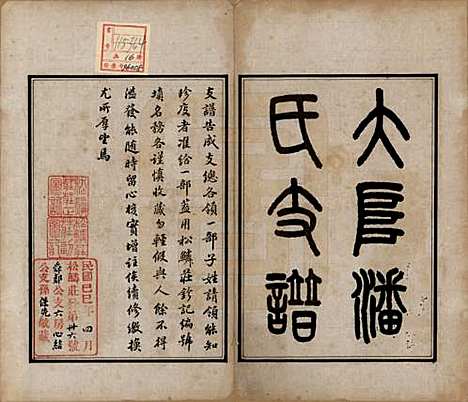 大阜潘
氏支譜
支譜告成支總各領一部子姓請領能知
珍度者准給一部蓋用松鱗莊鈐記編號
填名務各謹慎收藏勿輕假與人餘不得
濫發能隨時留心核實增注俟續修徵換
尤所厚望焉
民國己巳年四月
松鱗莊 第廿六號
公支六房心
公支孫 敬藏